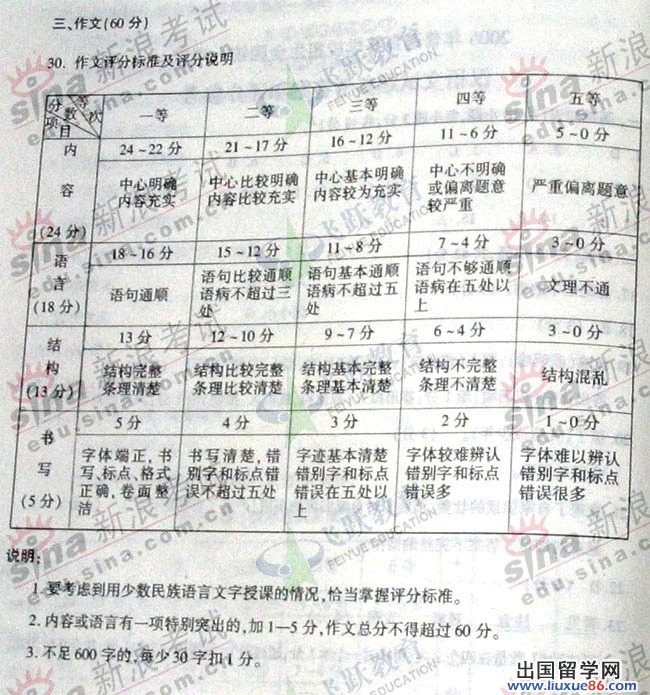 三、作文(60分)
30. 作文评分标准及评分说明
分数 等次 项目
一等
二等
三等
四等
五等
内容
(24分)
24~22分
21~17分
16~12分
11~6分
5~0分
中心明确
内容充实
中心比较明确
内容比较充实
中心基本明确
内容较为充实
中心不明确
或偏离题意
较严重
严重偏离题意
语言
(18分)
18~16分
15~12分
11~8分
7~4分
3~0分
语句通顺
语句比较通顺
语病不超过三
处
语句基本通顺
语病不超过五
处
语句不够通顺
语病在五处以
上
文理不通
结构
(13分)
13分
12~10分
9~7分
6~4分
3~0分
结构完整
条理清楚
结构比较完整
条理比较清楚
结构基本完整
条理基本清楚
结构不完整
条理不清楚
结构混乱
书写
(5分)
5分
4分
3分
2分
1~0分
字体端正,书
写、标点、格式
正确,卷面整
洁
书写清楚,错
别字和标点错
误不超过五处
字迹基本清楚
错别字和标点
错误在五处以
上
字体较难辨认
错别字和标点
错误多
字体难以辨认
错别字和标点
错误很多
说明:
1.要考虑到用少数民族语言文字授课的情况,恰当掌握评分标准。
2.内容或语言有一项特别突出的,加1—5分,作文总分不得超过60分。
3.不足600字的,每少30字扣1分。
sina新浪考试
edu.sina.com.cn
飞跃教育
FEIYUE EDUCATION
出国留学网
www.liuxue86.com